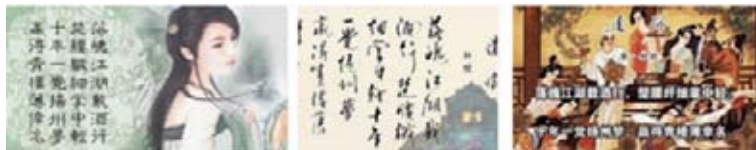 落魄江湖載酒行
楚腰纖細掌中輕
十年一覺揚州夢
贏得青樓薄倖名
遣懷
杜牧
落魄江湖載
酒行楚腰纖
細掌中輕十年
一覺揚州夢
贏得青樓薄倖
落魄江湖載酒行，楚腰纖細掌中輕。
十年一覺揚州夢，贏得青樓薄倖名。